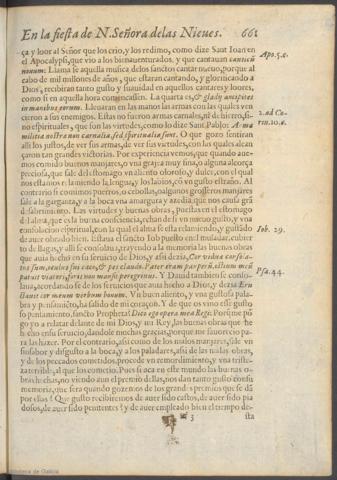 En la fiesta de N. Señora delas Nieues. 661
ça y loor al Señor que los crio, y los redimo, como dize Sant Ioan en
el Apocalypsi, que vio a los bienauenturados, y que cantauan canticũ
nouum: Llama se aquella musica delos sanctos cantar nueuo, porque al
cabo de mil millones de años, que estaran cantando, y glorificando a
Dios, recibiran tanto gusto y suauidad en aquellos cantares y loores,
como si en aquella hora començassen. La quarta es, & gladij ancipites
in manibus eorum. Lleuaran en las manos las armas con las quales ven
cieron a sus enemigos. Estas no fueron armas carnales, ni de hierro, si-
no espirituales, que son las virtudes, como lo dize Sant Pablo: Arma
militiæ nostræ non carnalia, sed spiritualia sunt. O que gozo sentiran
alli los justos, de ver sus armas, de ver sus virtudes, con las quales alcan
çaron tan grandes victorias. Por experiencia vemos, que quando aue-
mos comido buenos manjares, o vna grajea muy fina, o alguna alcorça
preciosa, que sale del estomago vn aliento oloroso, y dulce, con el qual
nos estamos relamiendo la lengua, y los labios, cõ vn gusto estraño. Al
contrario si comimos puerros, o cebollas, qualquier grosseros manjares
sale a la garganta, y a la boca vna amargura y azedia, que nos causa grã
desabrimiento. Las virtudes y buenas obras, puestas en el estomago
del alma, que es la buena consciencia, echan de si vn nueuo gusto, y vna
consolacion espiritual, con la qual el alma se esta relamiendo, y gustãdo
de auer obrado bien. Estaua el sancto Iob puesto en el muladar, cubier
to de llagas, y alli se consolaua, trayendo a la memoria las buenas obras
que auia hecho en su seruicio de Dios, y assi dezia, Cor viduæ consola-
tus sum, oculus fui cæco, & pes claudo. Pater eram pauperũ, ostium meũ
patuit viatori, foris non mansit peregrinus. Y Dauid tambien se conso-
laua, acordando se de los seruicios que auia hecho a Dios, y dezia Eru
ctauit cor meum verbum bonum. Vn buen aliento, y vna gustosa pala-
bra y pensamiẽto, ha salido de mi coraçõ. Y de que os vino esse gusto
so pensamiento, sancto Propheta? Dico ego opera mea Regi: Porque põ
go yo a relatar delante de mi Dios, y mi Rey, las buenas obras que he
hecho en su seruicio, dandole muchas gracias, porque me fauorecio pa-
ra las hazer. Por el contrario, assi como de los malos manjares, sale vn
sinsabor y disgusto a la boca, y a los paladares, assi de las malas obras,
y de los peccados cometidos, procede vn remordimiento, y vna triste-
za terrible, al que los cometio. Pues si aca en este mundo las buenas o-
bras hechas, no viendo aun el premio dellas, nos dan tanto gusto con su
memoria, que sera quando gozemos de los grandes premios que se dã
por ellas? Que gusto recibiremos de auer sido castos, de auer sido pia
dosos, de auer sido penitentes? y de auer empleado bien el tiempo de-
3 sta
Apo.5.c.
2.ad Co-
rin.10.a.
Iob. 29.
Psa.44.
Biblioteca de Galicia